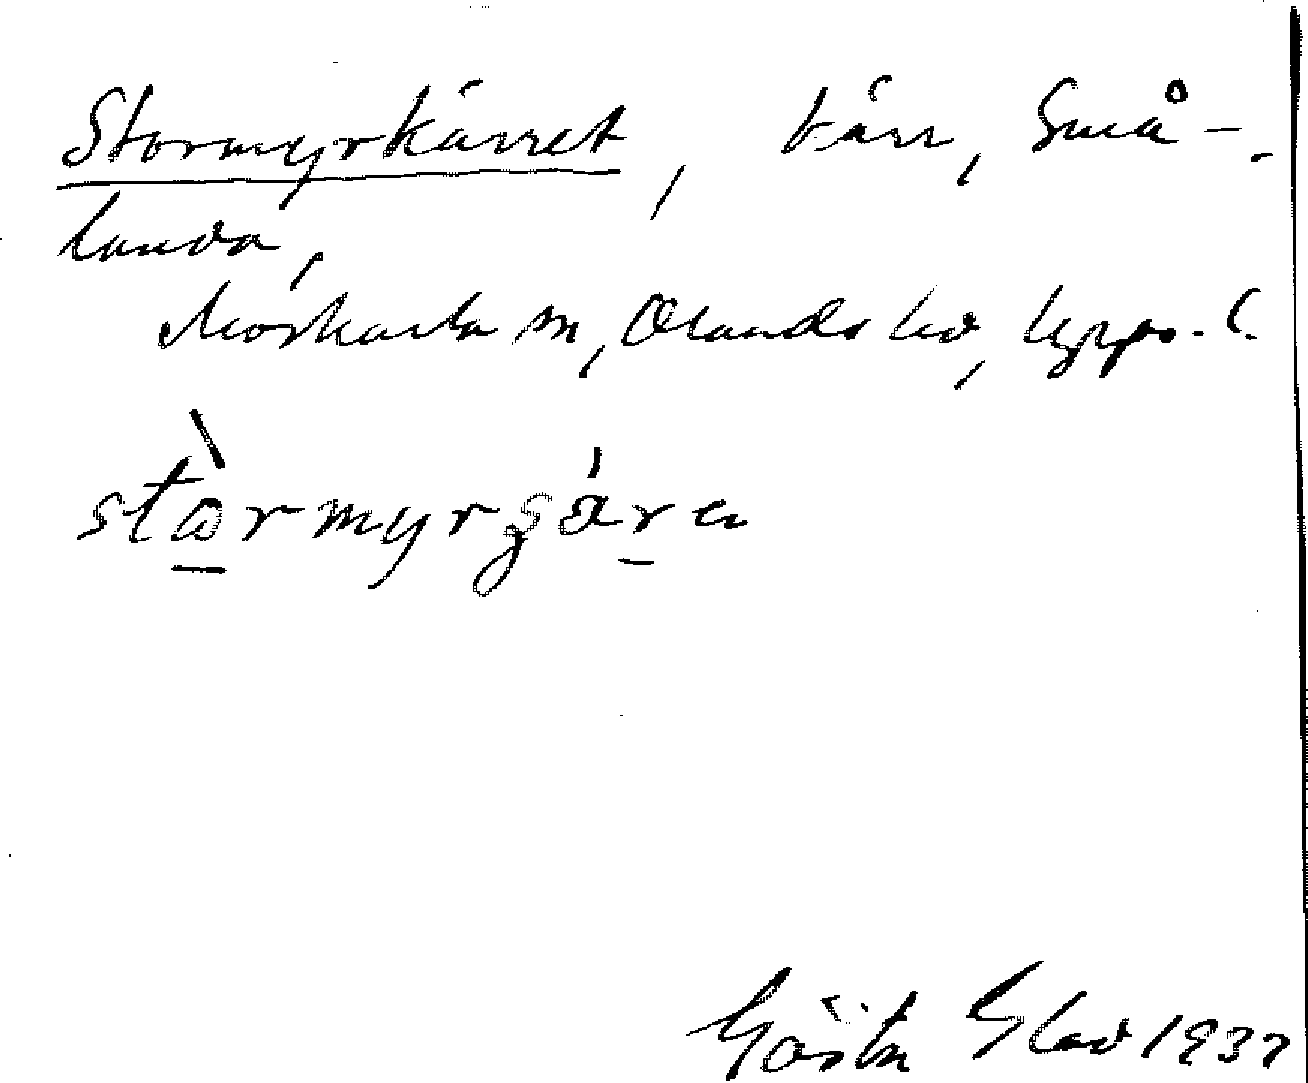 Stormyrkärret, kärr, Små-
landa,
Morkarla sn, Olands hd, Upps. l.
stòrmyrçä́rɐ
Gösta Glad 1937